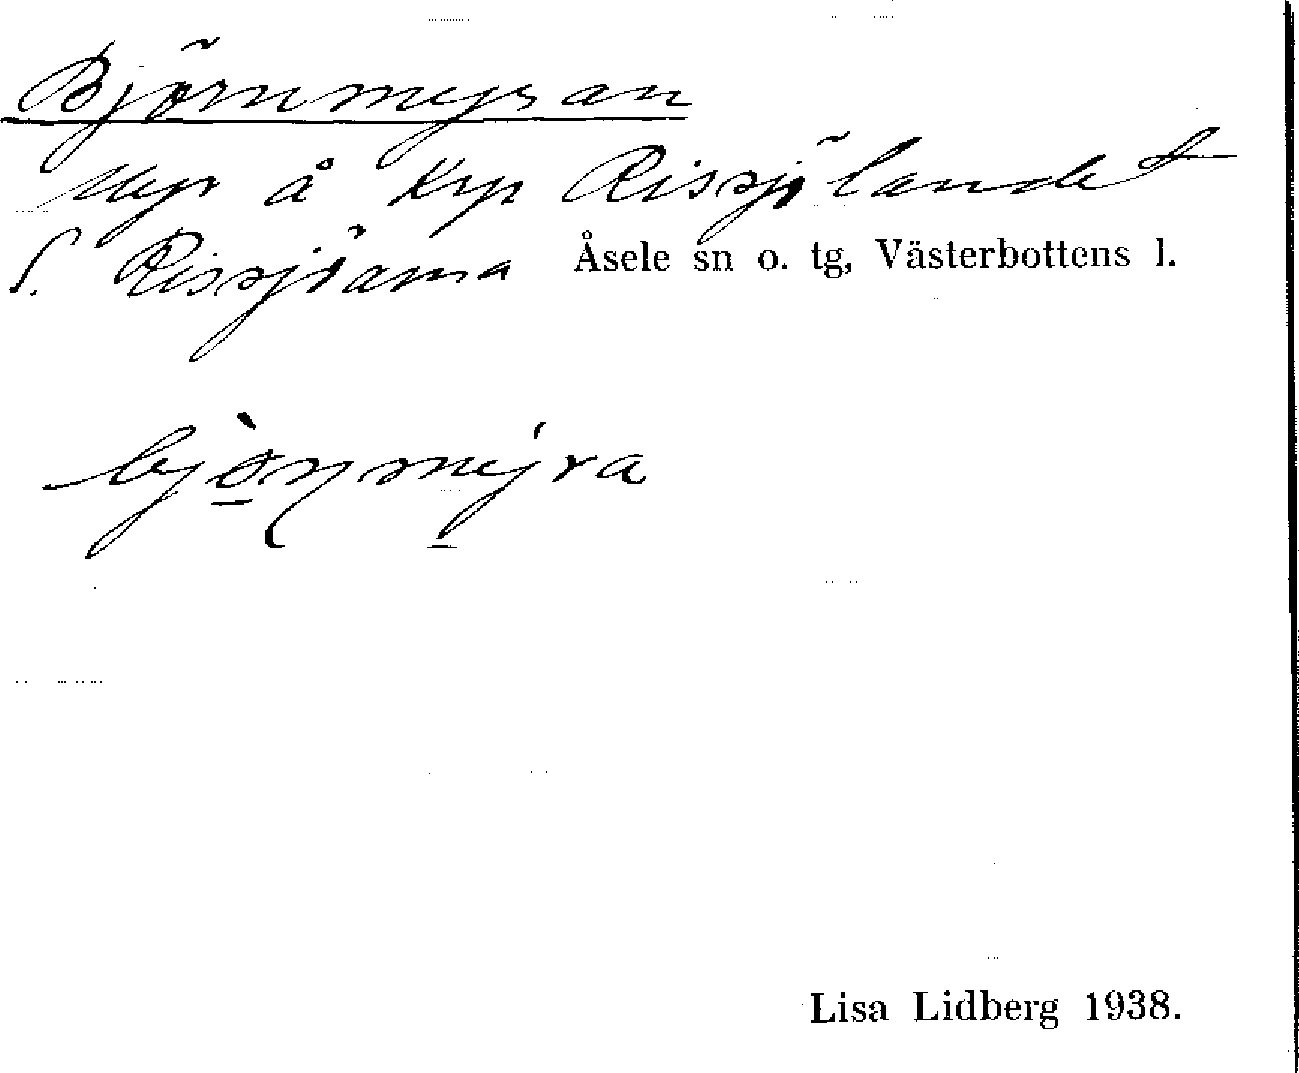 Björnmyran
Myr å Krp Rissjölandet
S. Rissjöarna Åsele sn o. tg, Västerbottens l.
bjò̱ɳmý̱ra
Lisa Lidberg 1938.